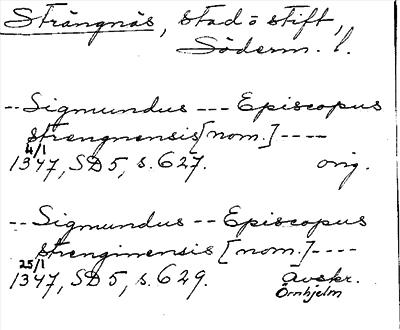 Strängnäs, stad o stift,
Söderm. l.
-- Sigmundus --- Episcopus
strengnensis [nom.] ----
4/1
1347, SD 5, s. 627. orig.
-- Sigmundus -- Episcopus
strenginensis [nom.] ----
25/1
1347, SD 5, s. 629. Avskr.
Örnhjelm